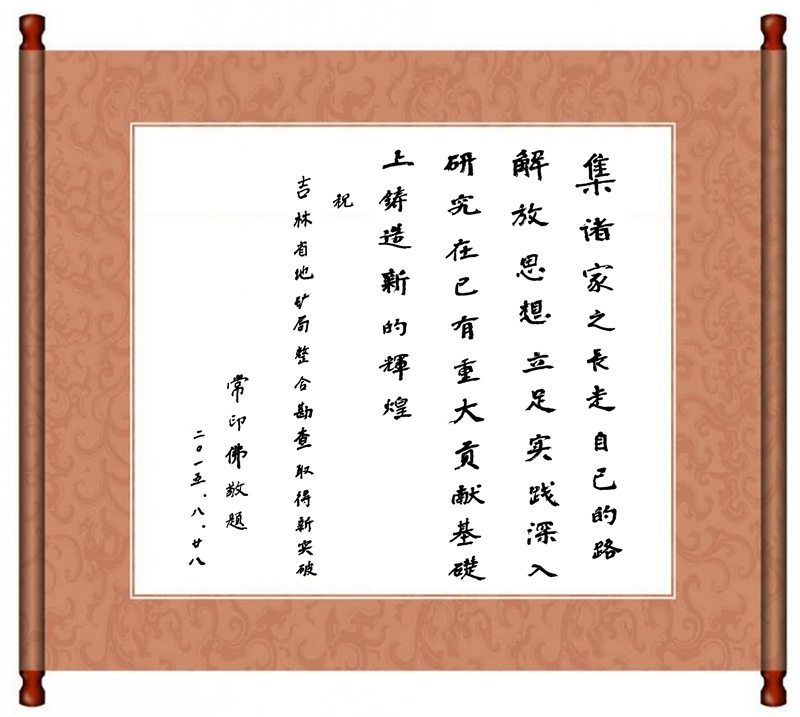 集诸家之長走自己的路
解放思想立足实践深入
研究在已有重大贡献基礎
上鋳造新的輝煌
祝
吉林省地矿局整合勘查取得新突破
常印佛敬題
二〇一五、八、廿八